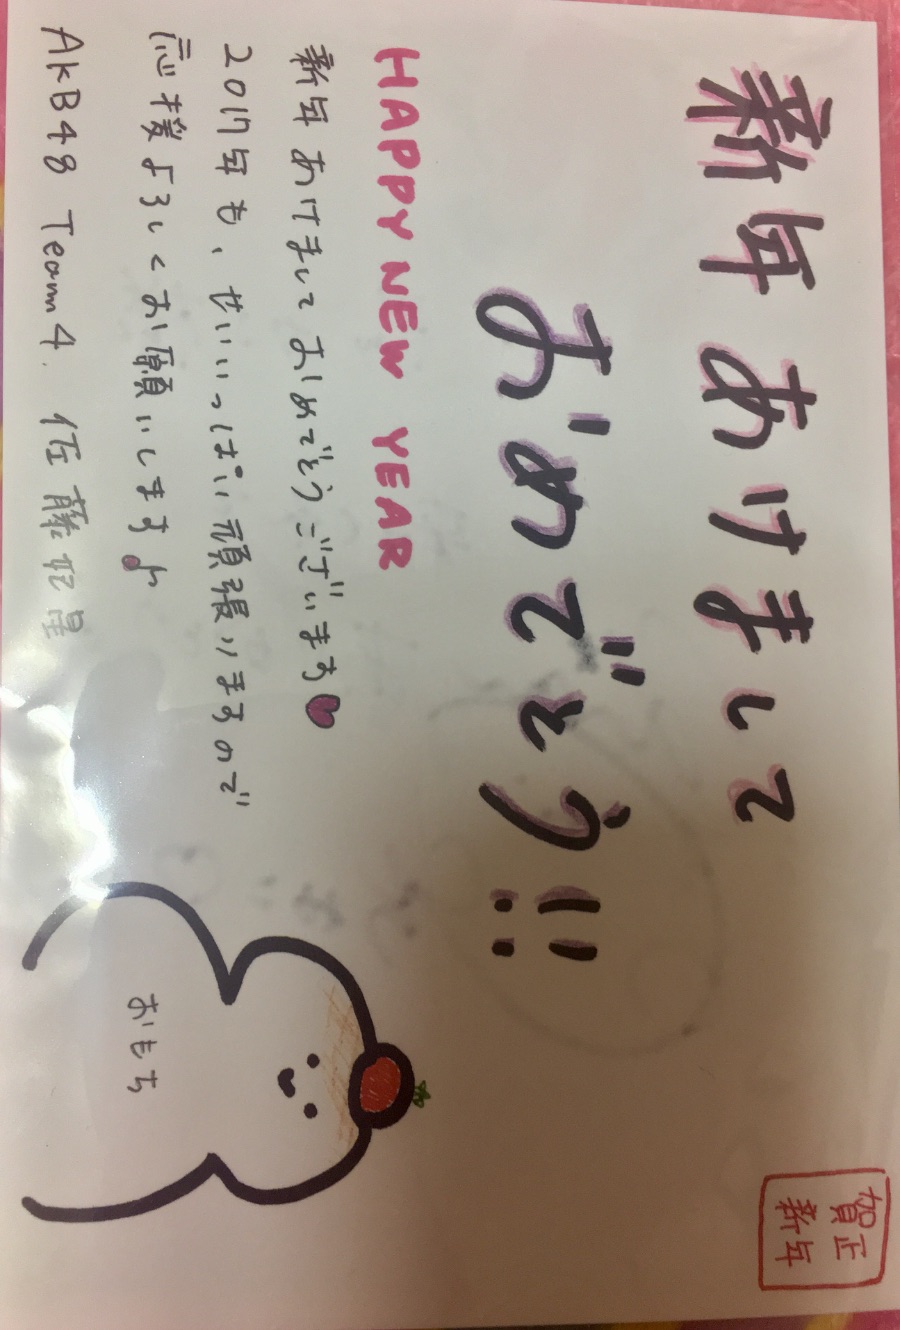 新年あけまして
おめでとう!!
HAPPY NEW YEAR
新年あけましておめでとうございます♥
2017年も、せいいっぱい頑張りますので
応援よろしくお願いします♪
AKB48 Team4. 佐藤妃星
おもち
賀正
新年